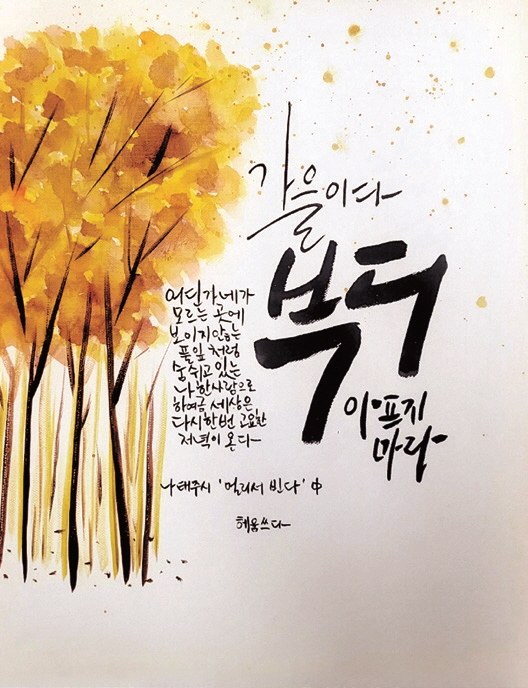 가을이다
부디
아프지
마라
어딘가 네가
모르는 곳에
보이지않는
풀잎 처럼
숨쉬고 있는
나 한사람으로
하여금 세상은
다시한번 고요한
저녁이 온다
나태주시 '멀리서 빈다' 中
혜움쓰다